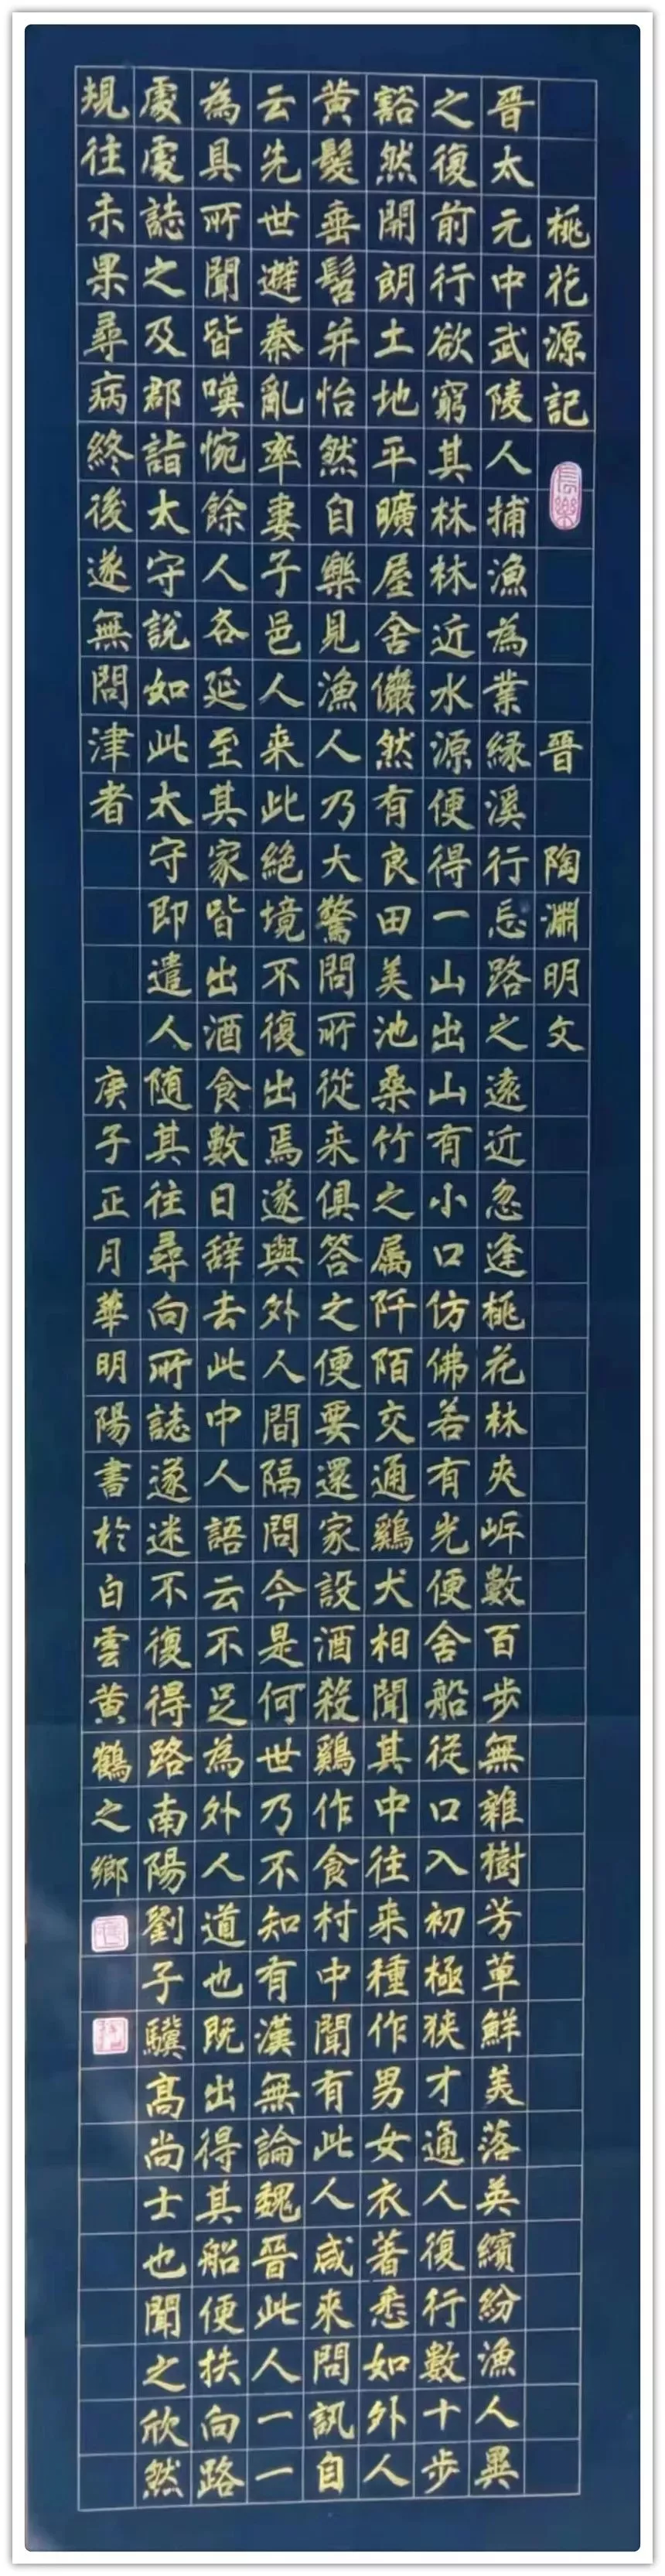 桃花源記 長樂 晋 陶淵明文
晋太元中武陵人捕漁為業緣溪行忘路之遠近忽逢桃花林夾岍數百步無雜樹芳草鮮美落英繽紛漁人異
之復前行欲窮其林林近水源便得一山出山有小口仿佛若有光便舍船從口入初極狹才通人復行數十步
豁然開朗土地平曠屋舍儼然有良田美池桑竹之属阡陌交通鷄犬相聞其中往来種作男女衣著悉如外人
黄髮垂髫并怡然自樂見漁人乃大驚問所從来俱答之便要還家設酒殺鷄作食村中聞有此人咸來問訊自
云先世避秦亂率妻子邑人来此絶境不復出焉遂與外人間隔問今是何世乃不知有漢無論魏晋此人一一
為具所聞皆嘆惋餘人各延至其家皆出酒食數日辞去此中人語云不足為外人道也既出得其船便扶向路
處處誌之及郡詣太守說如此太守即遣人随其往尋向所誌遂迷不復得路南陽劉子驥髙尚士也聞之欣然
規往未果尋病終後遂無問津者 庚子正月華明陽書於白雲黄鶴之鄉